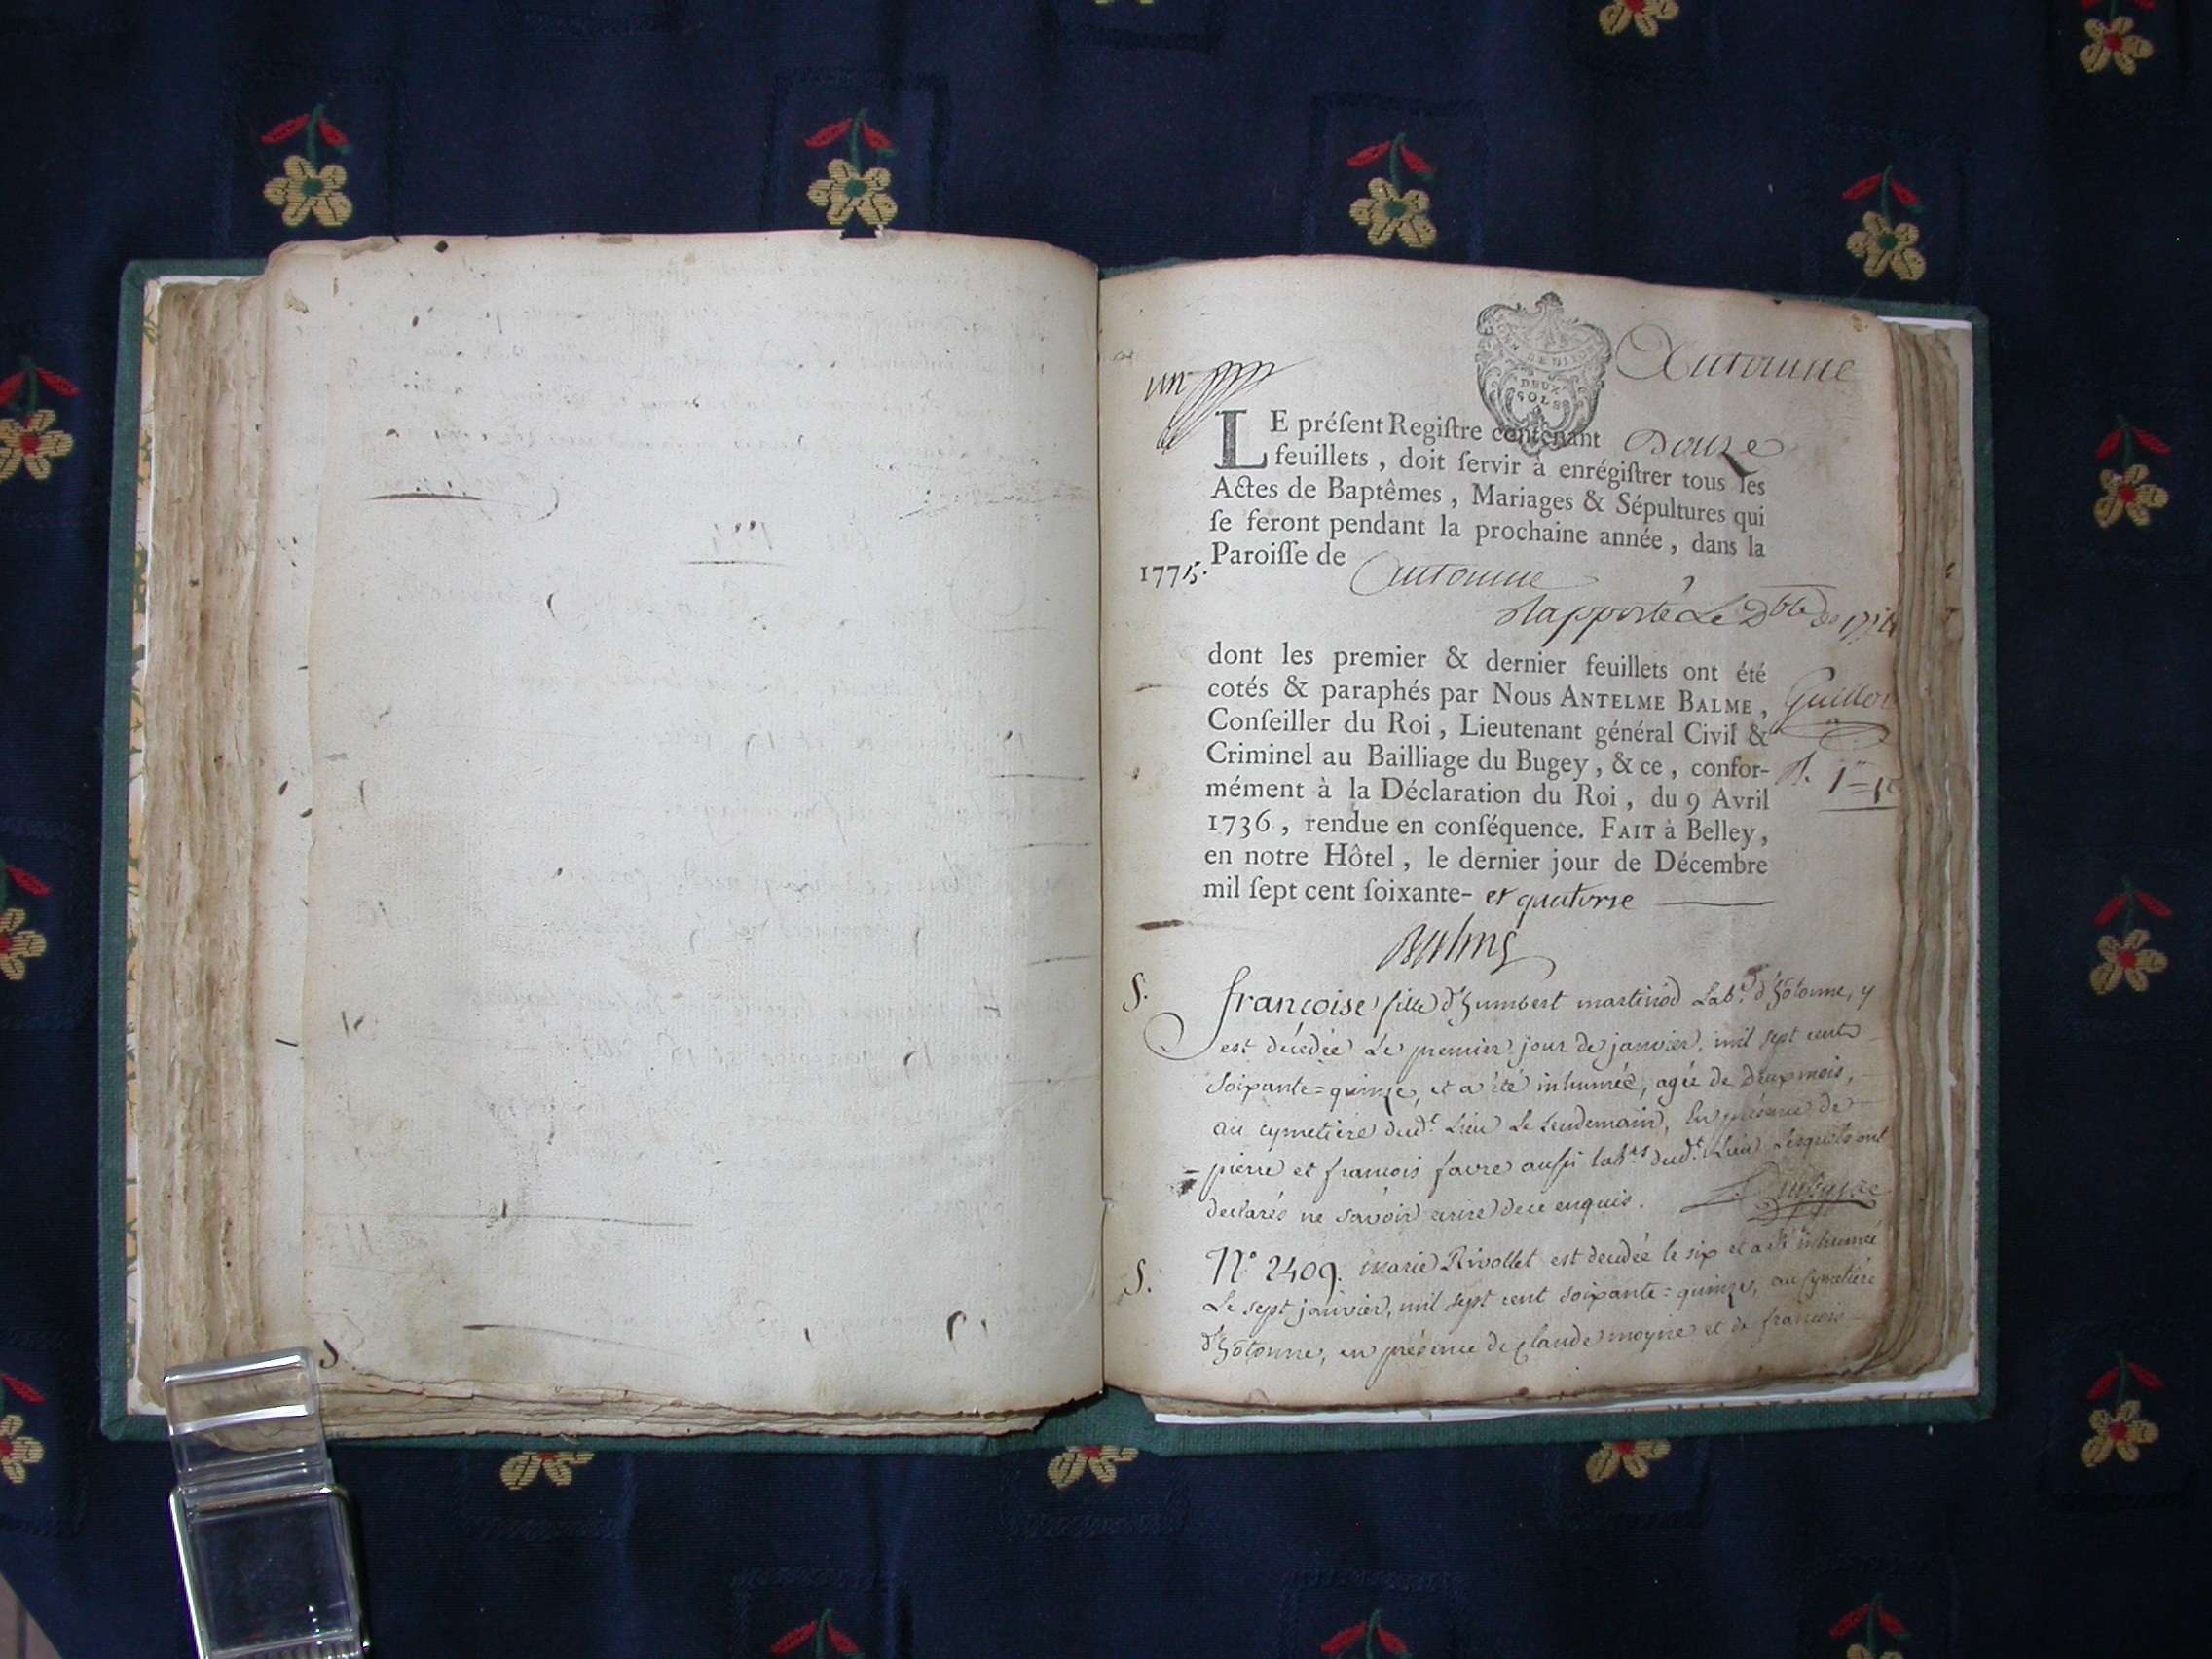 un
GEN DE DIJON
DEUX
SOLS
Autonne
LE préſent Regiſtre contenant Douze
feuillets, doit ſervir à enrégiſtrer tous les
Actes de Baptêmes, Mariages & Sépultures qui
ſe feront pendant la prochaine année, dans la
1775. Paroiſſe de Autonne
Rapporté Le
dont les premier & dernier feuillets ont été
cotés & paraphés par Nous ANTELME BALME,
Conſeiller du Roi, Lieutenant général Civil &
Criminel au Bailliage du Bugey, & ce, confor-
mément à la Déclaration du Roi, du 9 Avril
1736, rendue en conſéquence. FAIT à Belley,
en notre Hôtel, le dernier jour de Décembre
mil ſept cent ſoixante- et quatorse
Guillot
Balme
S. françoise fille d'humbert martinod Lab.r d'hotonne, y
est décédée Le premier jour de janvier, mil sept cent
soixante=quinze, et a été inhumée, agée de deux mois,
au cymetière dud.t Lieu Le Lendemain, En présence de
pierre et francois favre aussi lab.rs dud.t Lieu Lesquels ont
declarés ne savoir ecrire de ce enquis.
S. N.o 2409. marie Rivollet est decedée le six et a été inhumée
Le sept janvier, mil sept cent soixante=quinze, au Cymetière
d'hotonne, en présence de Claude moyne et de francois